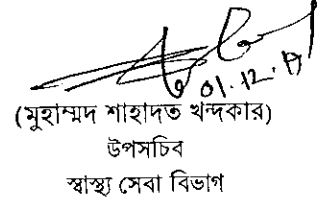 01.12.17
(মুহাম্মদ শাহাদত খন্দকার)
উপসচিব
স্বাস্থ্য সেবা বিভাগ